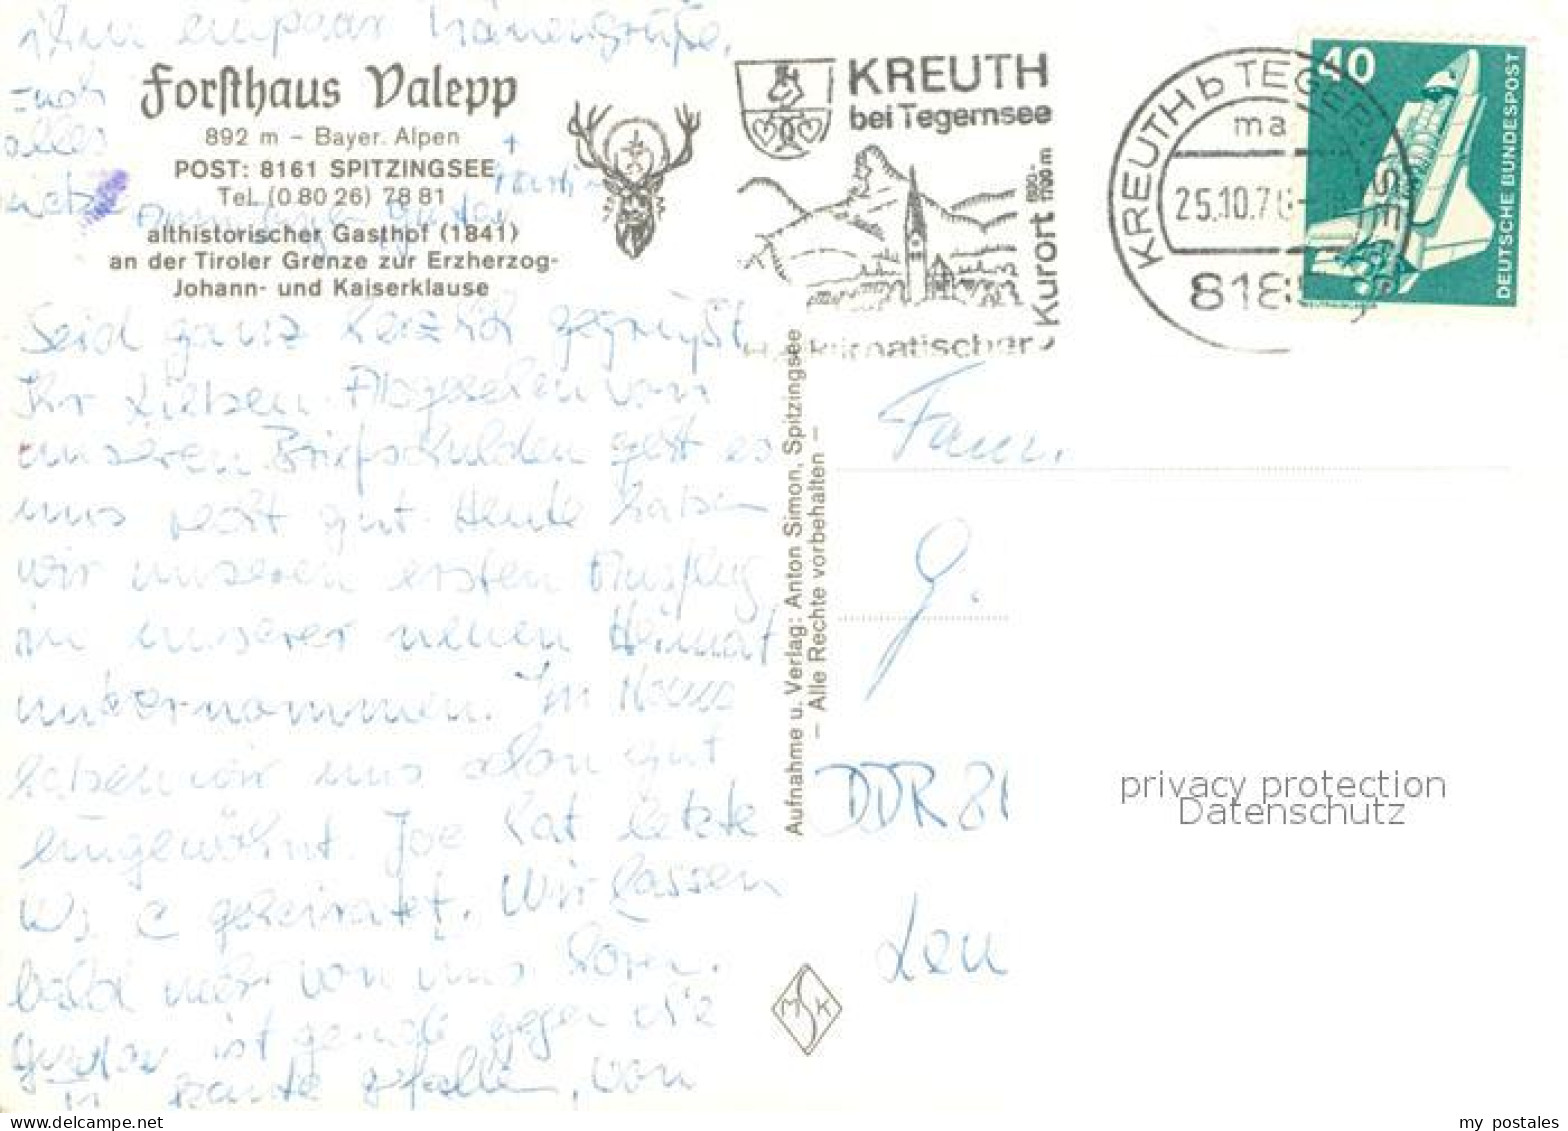 ihm ein paar
Forsthaus Valepp
892 m – Bayer. Alpen
POST: 8161 SPITZINGSEE
Tel. (0 80 26) 78 81
althistorischer Gasthof (1841)
an der Tiroler Grenze zur Erzherzog-
Johann- und Kaiserklause
alles
KREUTH
bei Tegernsee
Heilklimatischer Kurort
800-1700m
KREUTH b TEGERNSEE
ma
25.10.76-
818
40
DEUTSCHE BUNDESPOST
Seid ganz herzlich gegrüßt
Ihr Lieben. Abgesehen von
unseren Briefschulden geht es
uns recht gut. Heute haben
wir unseren ersten Ausflug
in unserer neuen Heimat
unternommen. Im Haus
haben wir uns schon gut
eingewöhnt. Joe hat letzte
Wo geheiratet. Wir lassen
bald mehr von uns hören.
ist gerade gegen die
Kante gefallen, von
Aufnahme u. Verlag: Anton Simon, Spitzingsee
– Alle Rechte vorbehalten –
Fam.
G.
DDR 81
Leu
MSK
privacy protection
Datenschutz
my postales